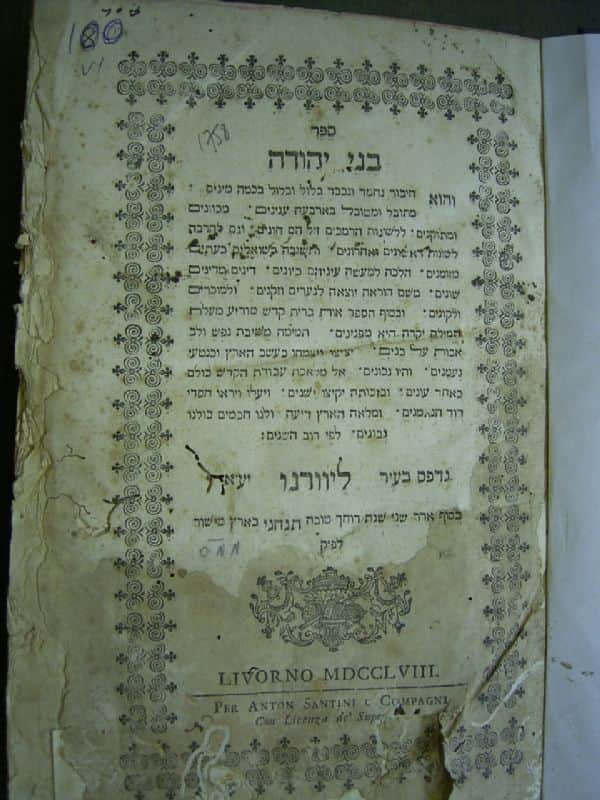 180
VI
1758
ספר
בני יהודה
והוא חיבור נחמד ונכבד בלול וכלול בכמה מינים
מחובל ומטובל בארבעה ענינים מכוונים
ומתוקנים ללשונות הרמב״ם ז״ל הם חונים וגם להרבה
לשונות ראשונים ואחרונים ותשובה לשואלים כעתים
מזומנים הלכה למעשה עיניהם כיונים דינים מדינים
שונים משם הוראה יוצאה לנערים וזקנים ולמוכרים
ולקונים ובסוף הספר אית ברית קדש מודיע מעלת
המילה יקרה היא מפנינים תמימה משיבת נפש ולב
אבות על בנים יציצו ויצמחו כעשב הארץ וכנטעי
נעמנים והיו נכונים אל מלאכת עבודת הקדש כולם
כאחד עונים ובזכותה יקיצו ישנים ויעלו ויראו חסדי
דוד הנאמנים ומלאה הארץ דיעה וכלנו חכמים כולנו
נבונים לפי רוב השנים:
נדפס בעיר ליוורנו יע״א
בסוף אדר שני שנת רוחך טובה תנחני בארץ מישור
לפ״ק
LIVORNO MDCCLVIII.
PER ANTON SANTINI E COMPAGNI
Con Licenza de' Super